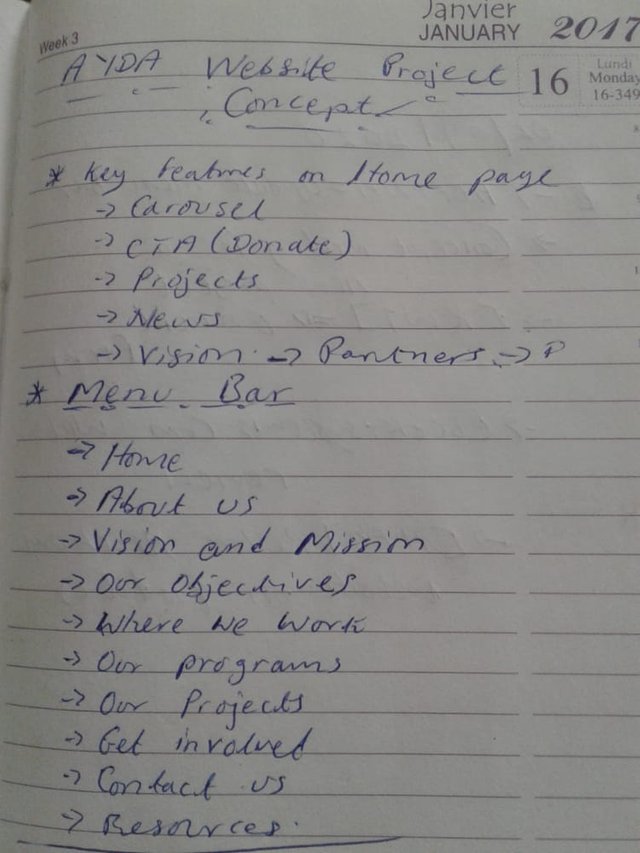 Janvier
Week 3 JANUARY 2017
AYDA Website Project 16 Lundi
Monday
16-349
Concept
* Key features on Home page
→ Carousel
→ CTA (Donate)
→ Projects
→ News
→ Vision → Partners → P
* Menu Bar
→ Home
→ About us
→ Vision and Mission
→ Our Objectives
→ Where we work
→ Our programs
→ Our Projects
→ Get involved
→ Contact us
→ Resources.